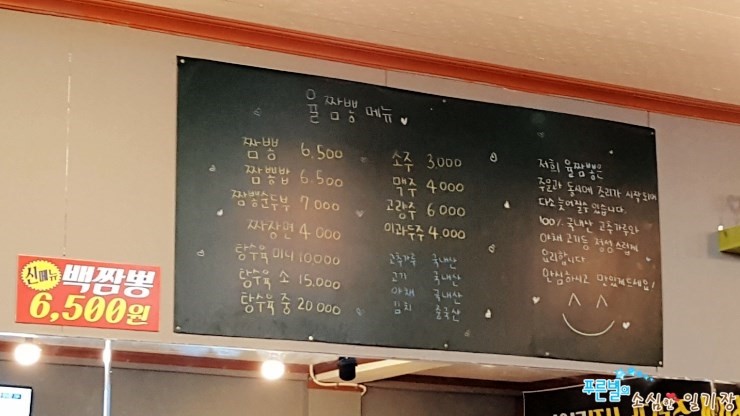 율짬뽕 메뉴
짬뽕 6.500
짬뽕밥 6.500
짬뽕순두부 7.000
짜장면 4.000
탕수육 미니 10000
탕수육 소 15.000
탕수육 중 20.000
소주 3.000
맥주 4.000
고량주 6.000
이과두주 4.000
고추가루 국내산
고기 국내산
야채 국내산
김치 중국산
저희 율짬뽕은
주문과 동시에 조리가 시작되어
다소 늦어질수 있습니다.
100% 국내산 고추가루와
야채 고기등 정성스럽게
요리합니다
안심하시고 맛있게드세요!
신메뉴
백짬뽕
6,500원
푸른별의
소심한 일기장